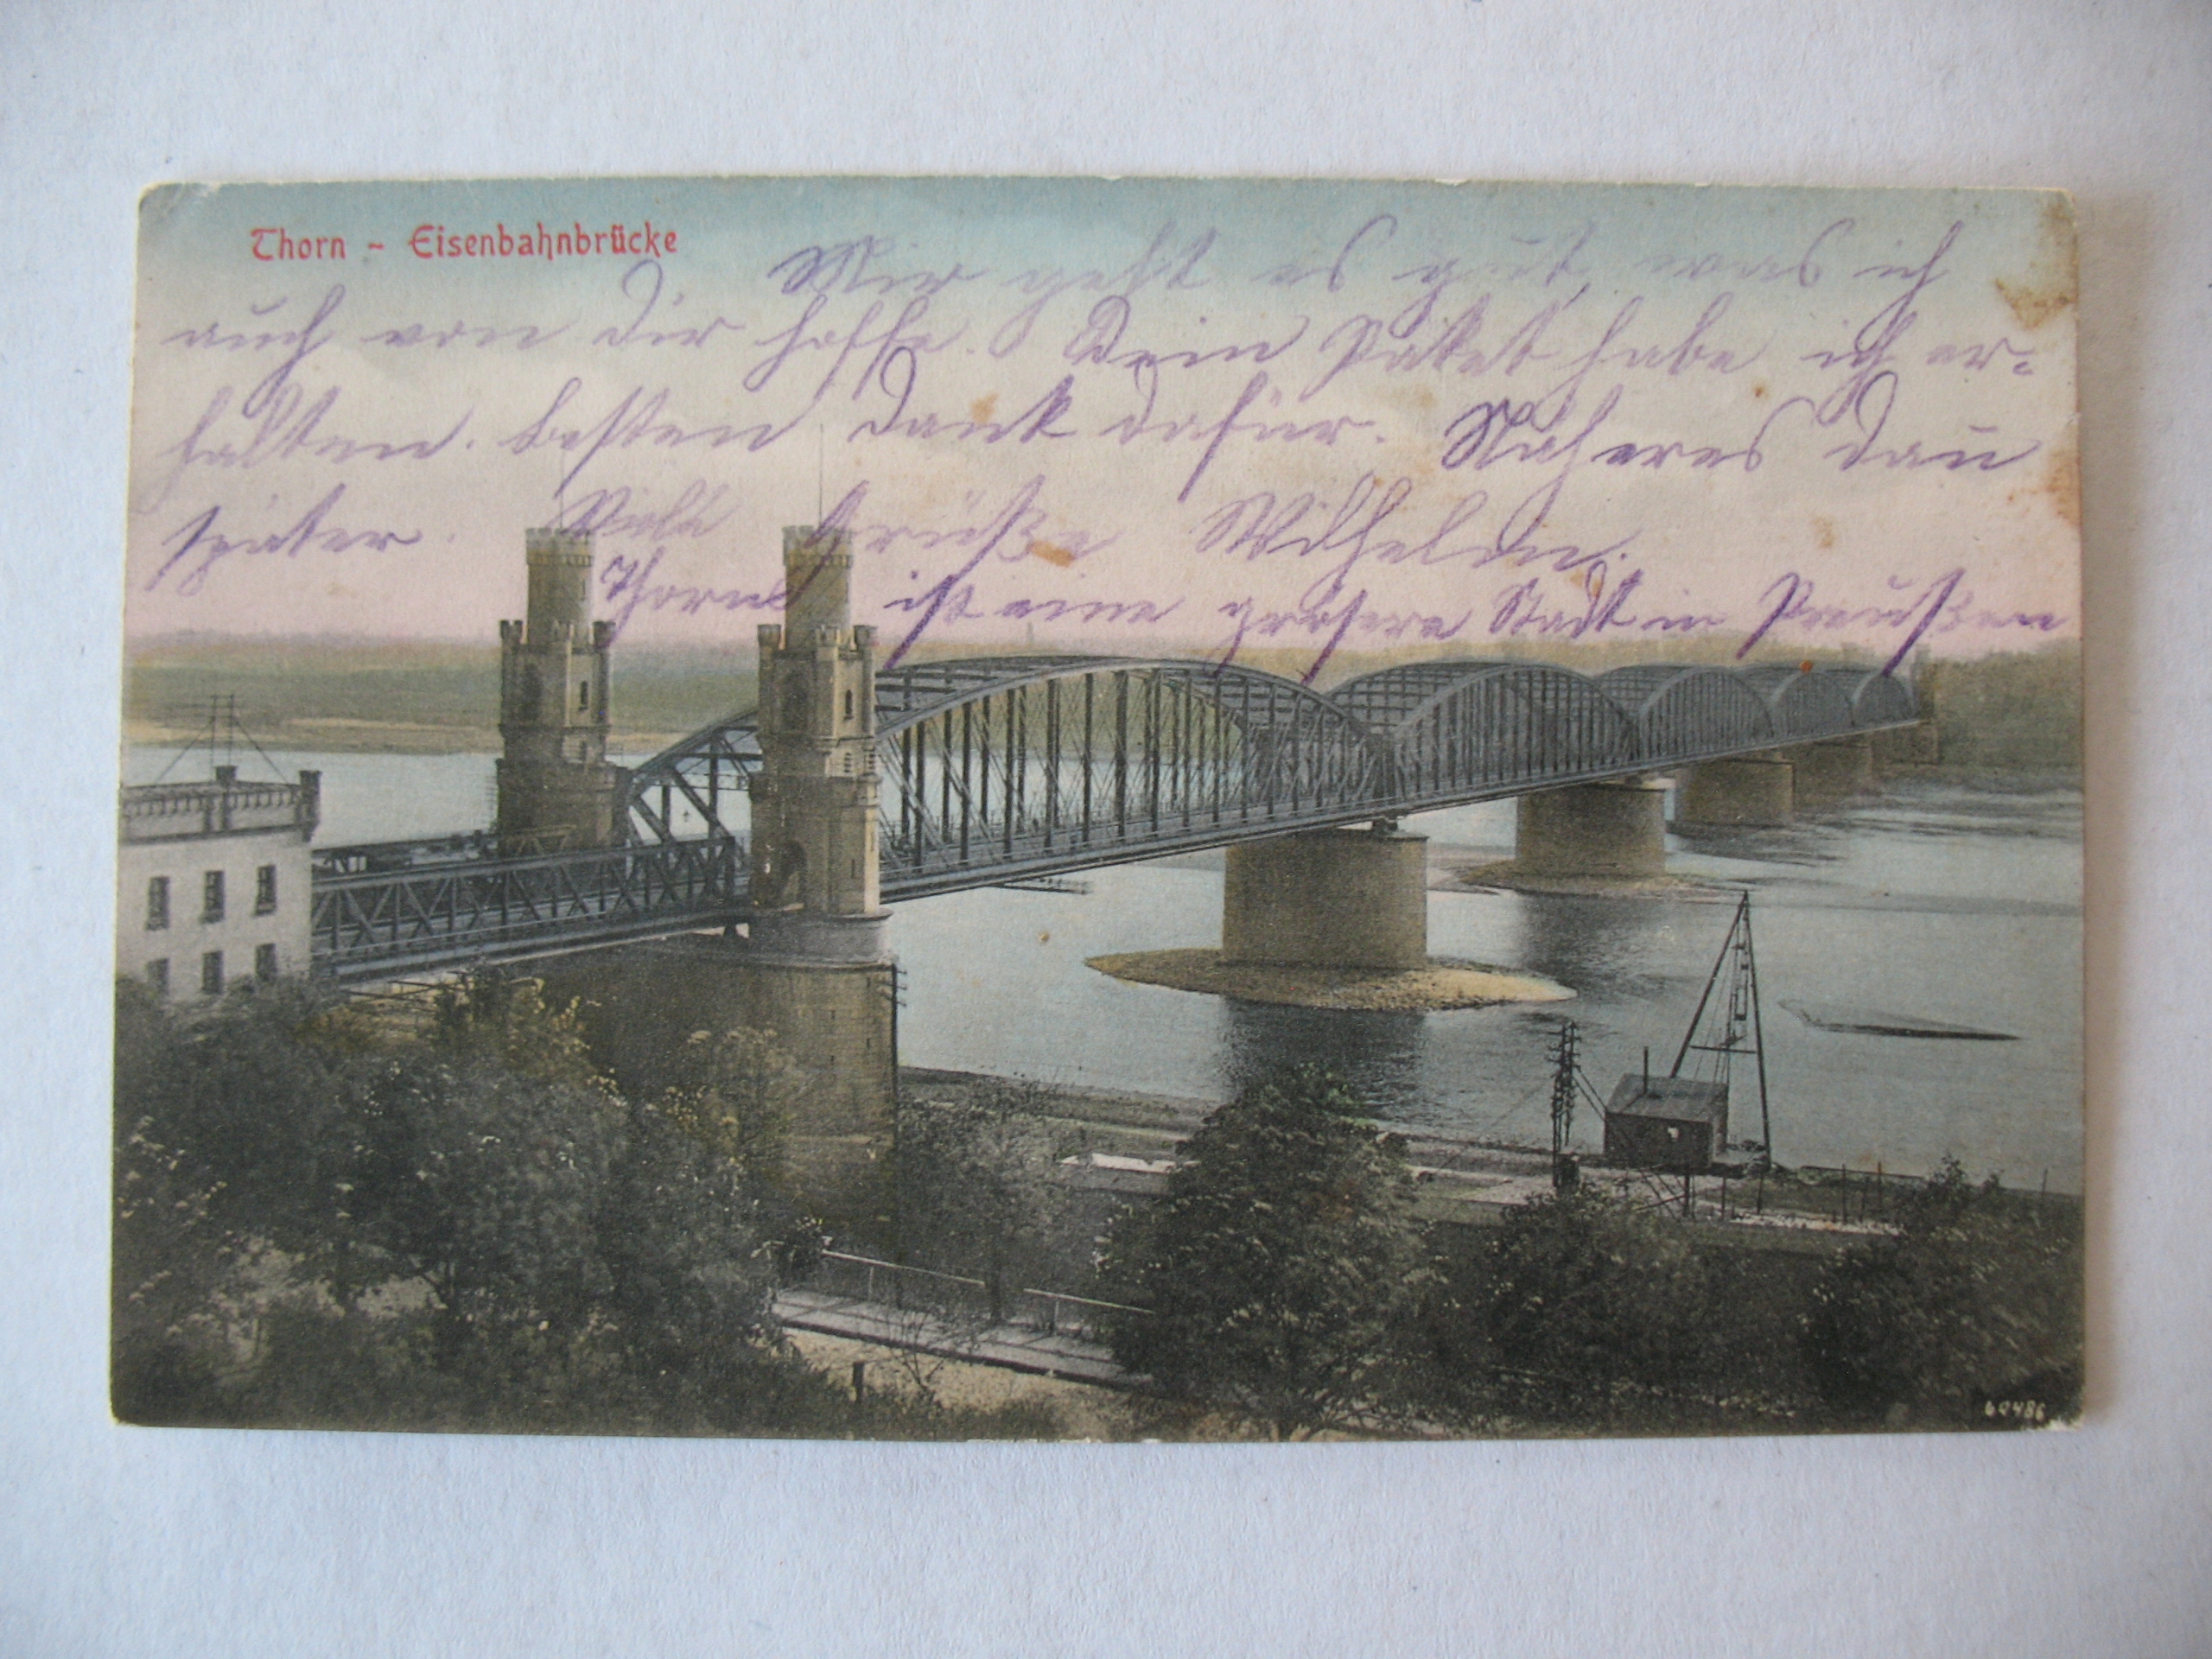 Thorn - Eisenbahnbrücke
Mir geht es gut, was ich
auch von dir hoffe. Dein Paket habe ich er=
halten. besten Dank dafür. Näheres dan
später. Grüße
Thorn ist eine grössere Stadt in Preußen
60486